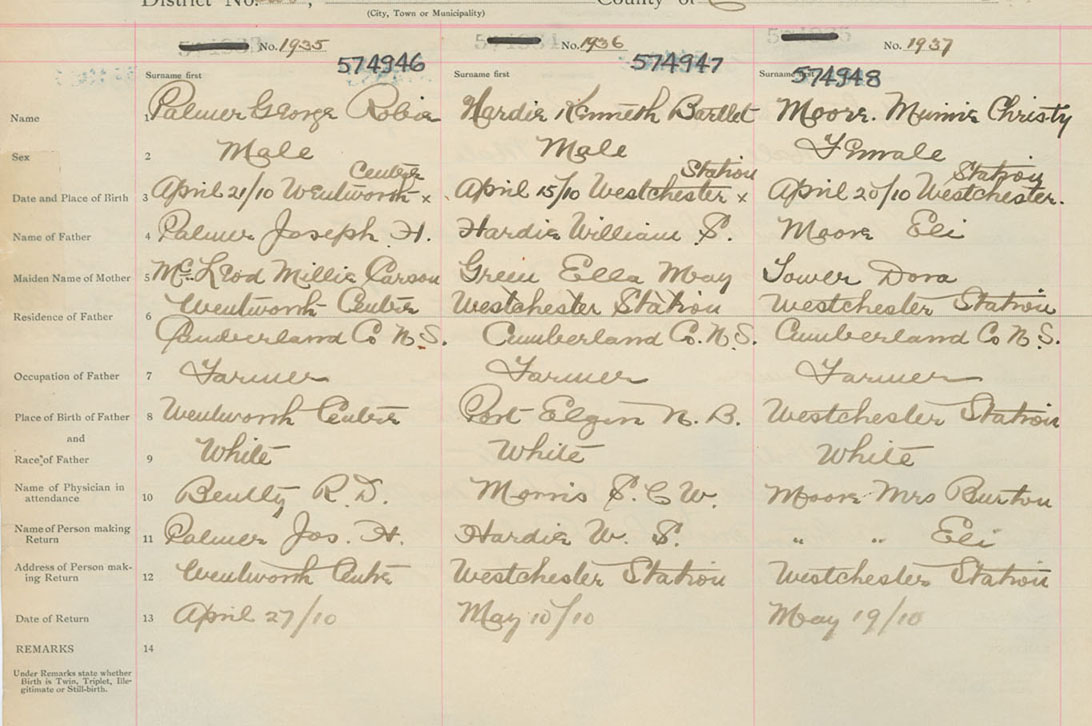 District No. County of
(City, Town or Municipality)
No. 1935 No. 1936 No. 1937
574946 574947 574948
Surname first Surname first Surname first
Name 1 Palmer George Robie Hardie Kenneth Bartlet Moore. Minnie Christy
Sex 2 Male Male Female
Centre Station Station
Date and Place of Birth 3 April 21/10 Wentworth x April 15/10 Westchester x April 20/10 Westchester.
Name of Father 4 Palmer Joseph H. Hardie William S. Moore Eli
Maiden Name of Mother 5 McLeod Millie Carson Green Ella May Tower Dora
Wentworth Centre Westchester Station Westchester Station
Residence of Father 6
Cumberland Co N.S. Cumberland Co. N.S. Cumberland Co N.S.
Occupation of Father 7 Farmer Farmer Farmer
Place of Birth of Father 8 Wentworth Centre Port Elgin N.B. Westchester Station
and
Race of Father 9 White White White
Name of Physician in
attendance 10 Bently R.D. Morris S.C.W. Moore Mrs Burton
Name of Person making
Return 11 Palmer Jos. H. Hardie W. S. " " Eli
Address of Person mak-
ing Return 12 Wentworth Centre Westchester Station Westchester Station
Date of Return 13 April 27/10 May 10/10 May 19/10
REMARKS 14
Under Remarks state whether
Birth is Twin, Triplet, Ille-
gitimate or Still-birth.